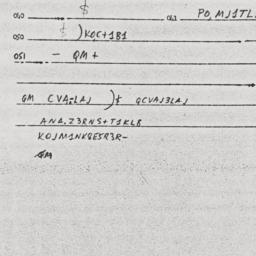 $
040 041 PO, MJ1TL
050 $ )KQC+1B1
051 - QM +
GM CVA;LAJ )$ QCVAJ3LAJ
ANA.Z3RNS+T1KLB
KOJM1NKQESR3R-
GM